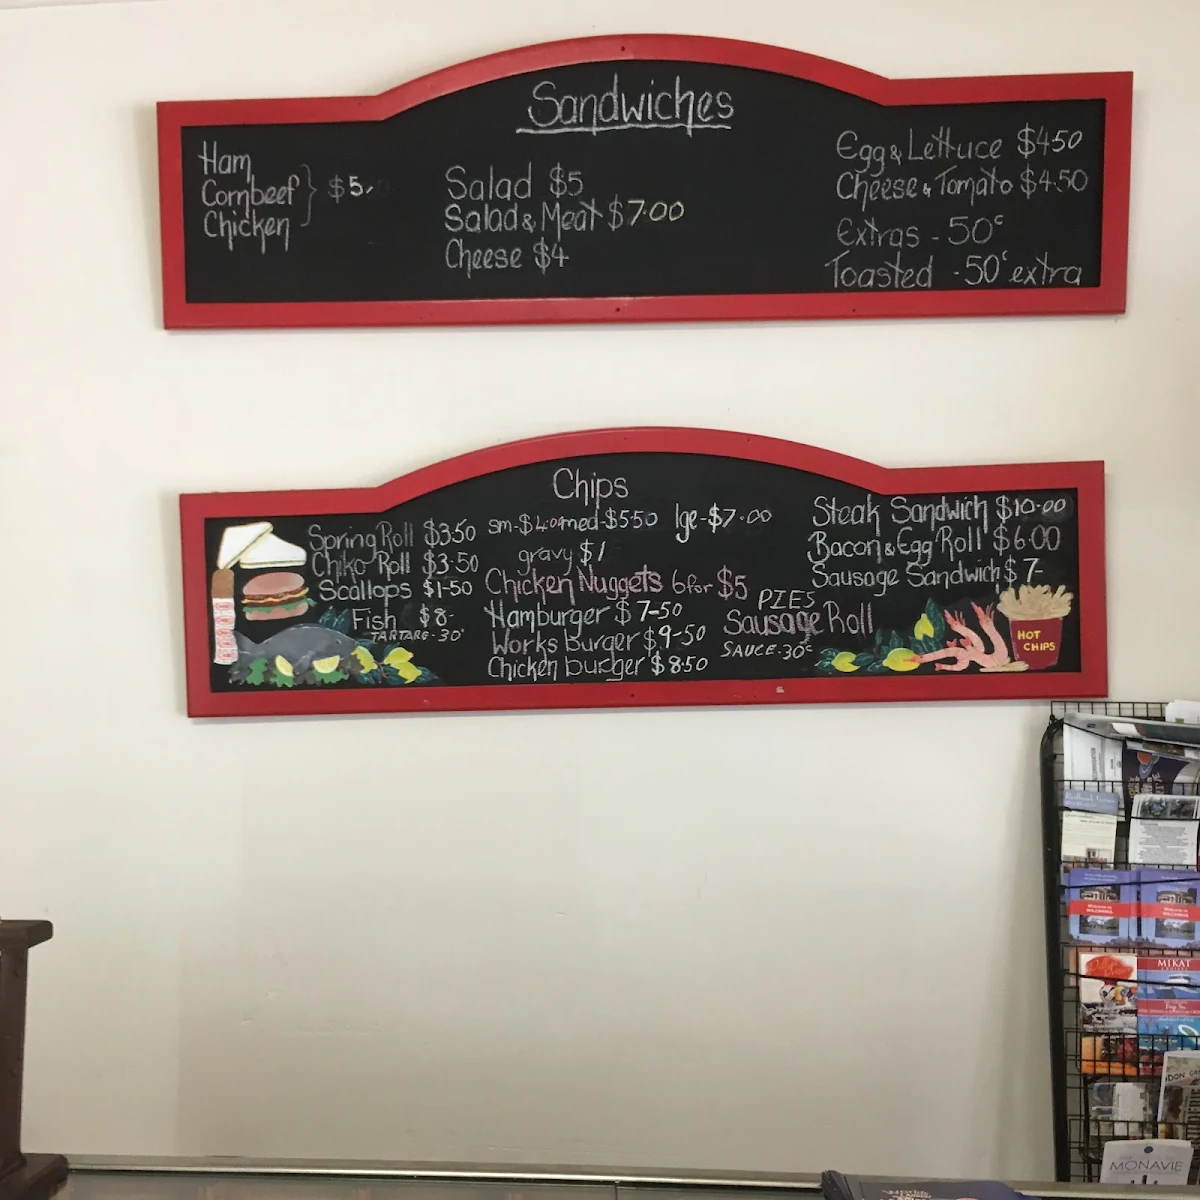 Sandwiches
Ham
Cornbeef } $5.
Chicken
Salad $5
Salad & Meat $7.00
Cheese $4
Egg & Lettuce $4.50
Cheese & Tomato $4.50
Extras - 50c
Toasted - 50c extra
Chips
sm-$4.00 med-$5.50 lge-$7.00
gravy $1
Spring Roll $3.50
Chiko Roll $3.50
Scallops $1-50
Fish $8-
TARTARE-30c
Chicken Nuggets 6 for $5
Hamburger $7-50
Works burger $9-50
Chicken burger $8.50
PIES
Sausage Roll
SAUCE-30c
Steak Sandwich $10.00
Bacon & Egg Roll $6.00
Sausage Sandwich $7-
HOT
CHIPS
MIKAT
MONAVIE